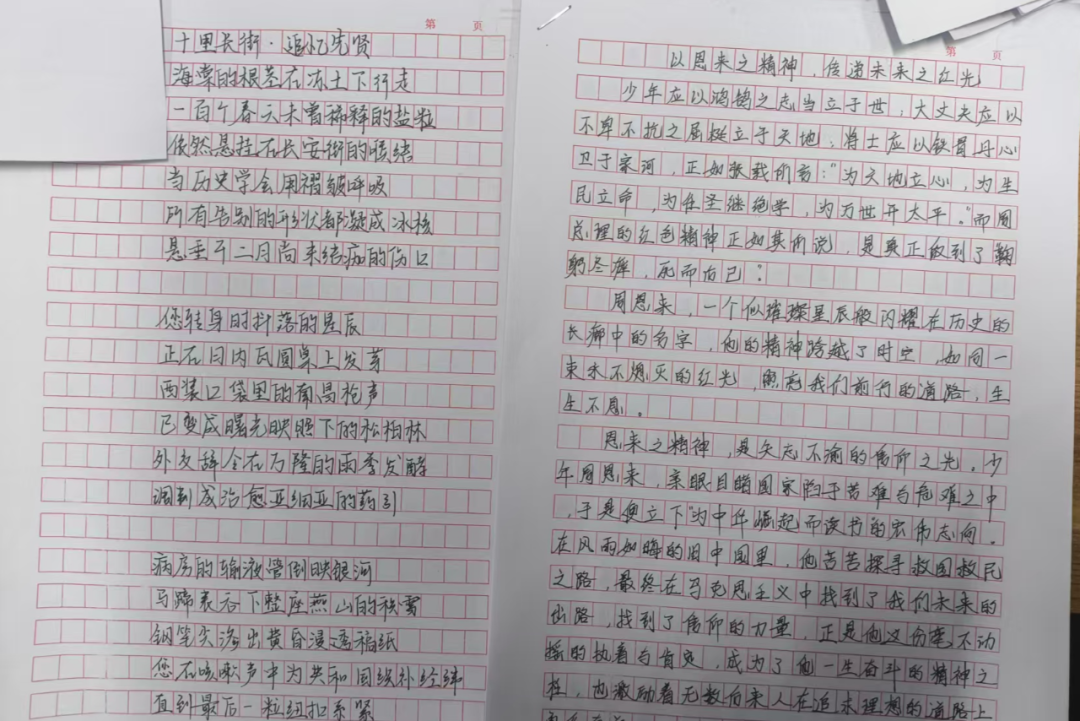 第 页
十里长街·追忆先贤
海棠的根茎在冻土下行走
一百个春天未曾稀释的盐粒
依然悬挂在长安街的喉结
当历史学会用褶皱呼吸
所有告别的形状都凝成冰核
悬垂于二月尚未结痂的伤口
您转身时抖落的星辰
正在日内瓦圆桌上发芽
西装口袋里的南昌枪声
已变成曙光映照下的松柏林
外交辞令在万隆的雨季发酵
调制成治愈亚细亚的药引
病房的输液管倒映银河
马蹄表吞下整座燕山的积雪
钢笔尖渗出黄昏浸透稿纸
您在咳嗽声中为共和国缝补经纬
直到最后一粒纽扣系紧
第 页
以恩来之精神，传递未来之红光
少年应以鸿鹄之志当立于世，大丈夫应以
不卑不抗之屈挺立于天地，将士应以铁骨丹心
卫于家河，正如张载所言：“为天地立心，为生
民立命，为往圣继绝学，为万世开太平。”而周
总理的红色精神正如其所说，是真正做到了鞠
躬尽瘁，死而后已：
周恩来，一个似璀璨星辰般闪耀在历史的
长廊中的名字，他的精神跨越了时空，如同一
束永不熄灭的红光，照亮我们前行的道路，生
生不息。
恩来之精神，是矢志不渝的信仰之光。少
年周恩来，亲眼目睹国家陷于苦难与危难之中
，于是便立下“为中华崛起而读书的宏伟志向。
在风雨如晦的旧中国里，他苦苦探寻救国救民
之路，最终在马克思主义中找到了我们未来的
出路，找到了信仰的力量，正是他这份毫不动
摇的执着与肯定，成为了他一生奋斗的精神之
柱，也激励着无数后来人在追求理想的道路上